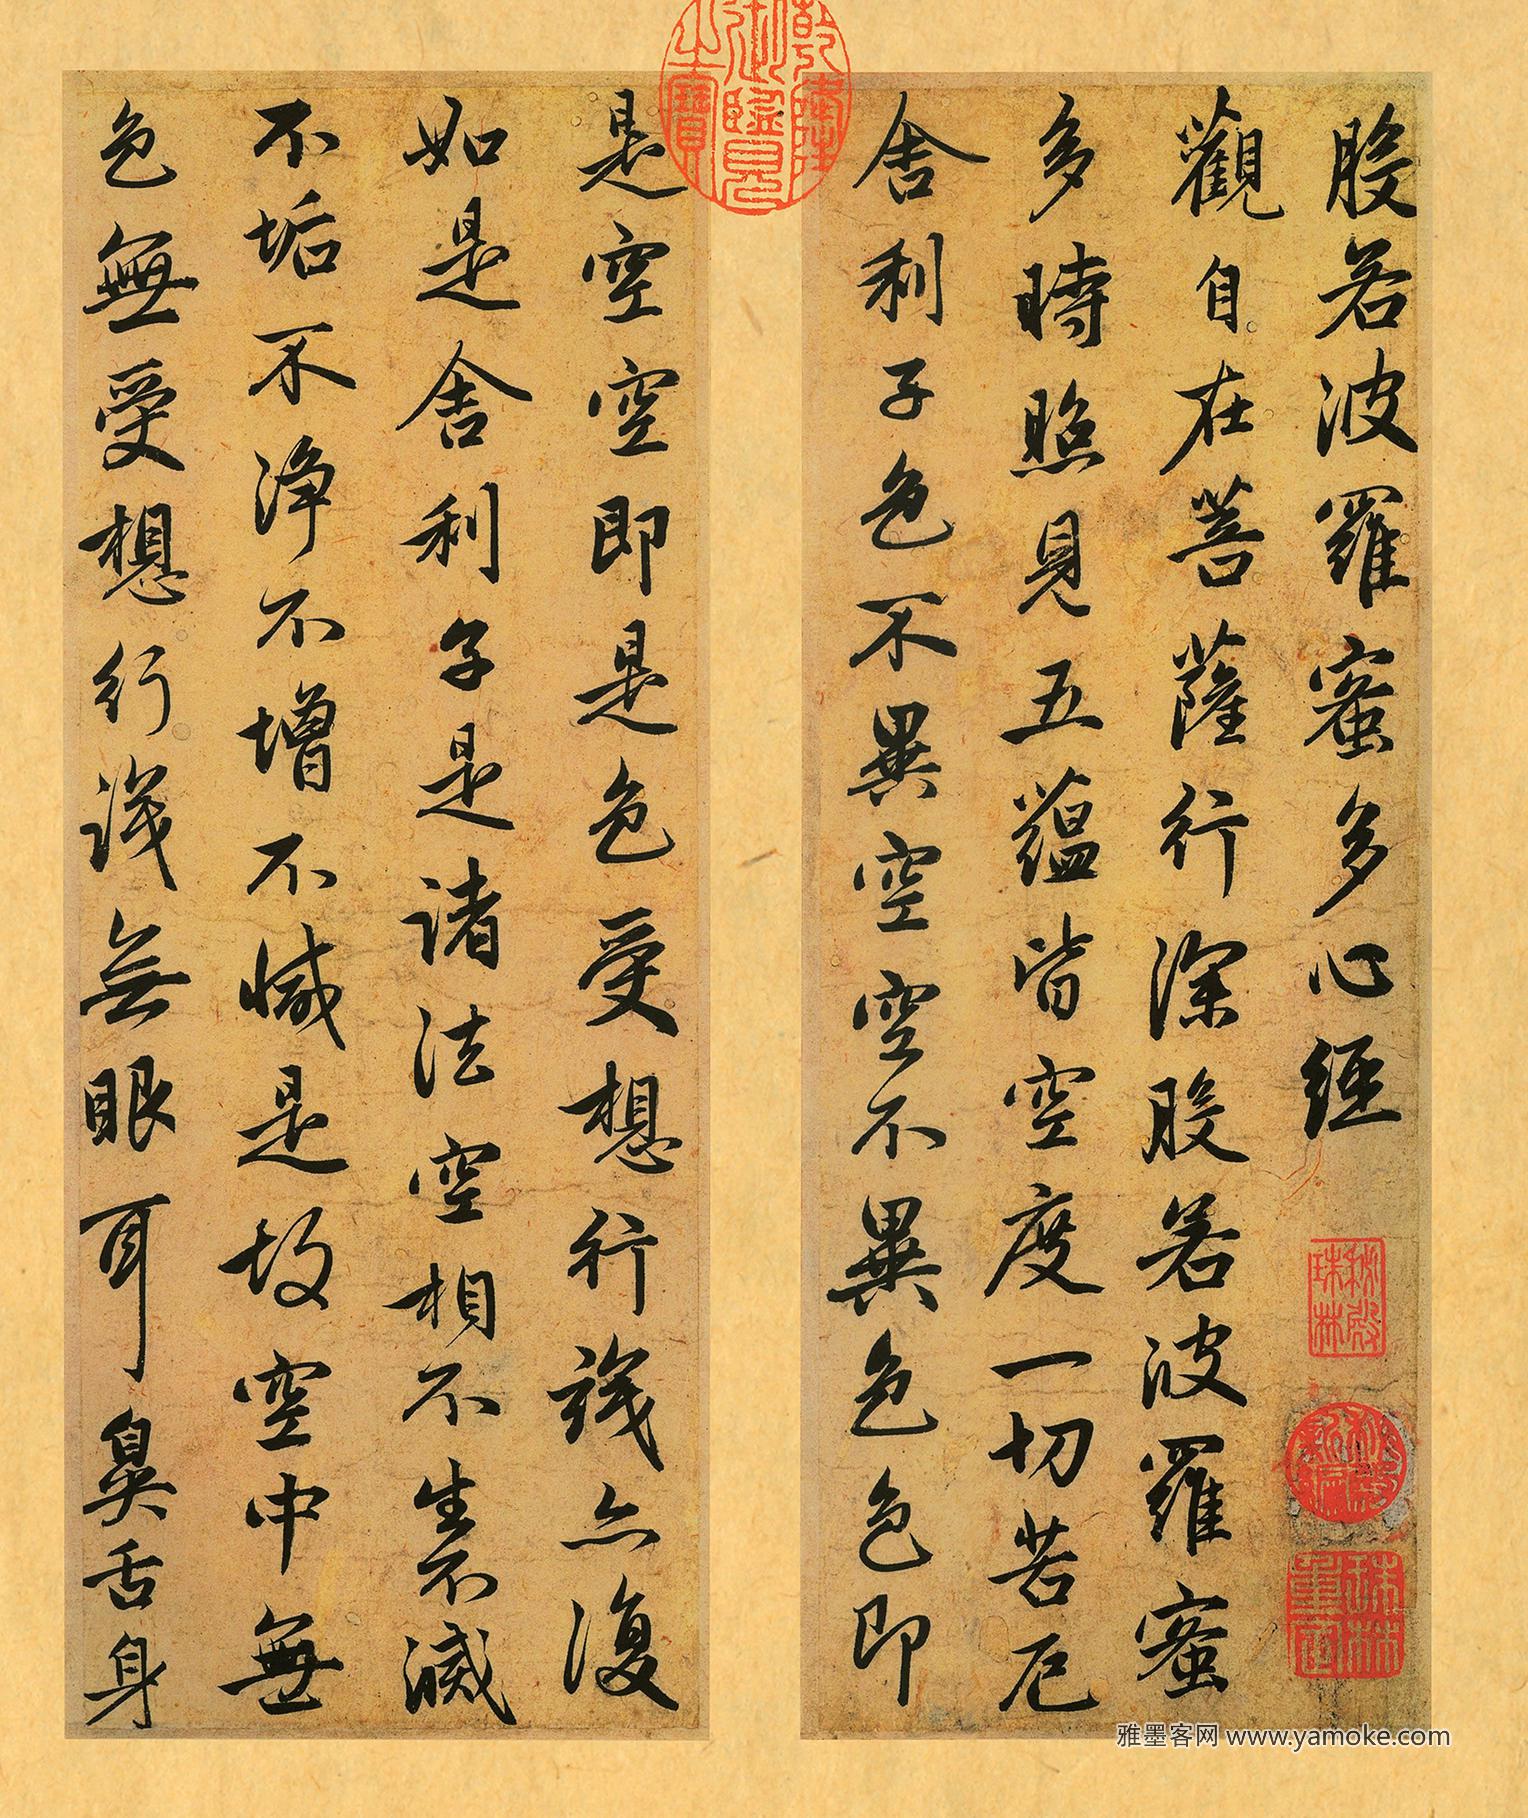 般若波羅蜜多心經
秘殿珠林
秘殿新編
珠林重定
觀自在菩薩行深般若波羅蜜
多時照見五蘊皆空度一切苦厄
舍利子色不異空空不異色色即
乾隆御覽之寶
是空空即是色受想行識亦復
如是舍利子是諸法空相不生不滅
不垢不淨不增不減是故空中無
色無受想行識無眼耳鼻舌身
雅墨客网 www.yamoke.com